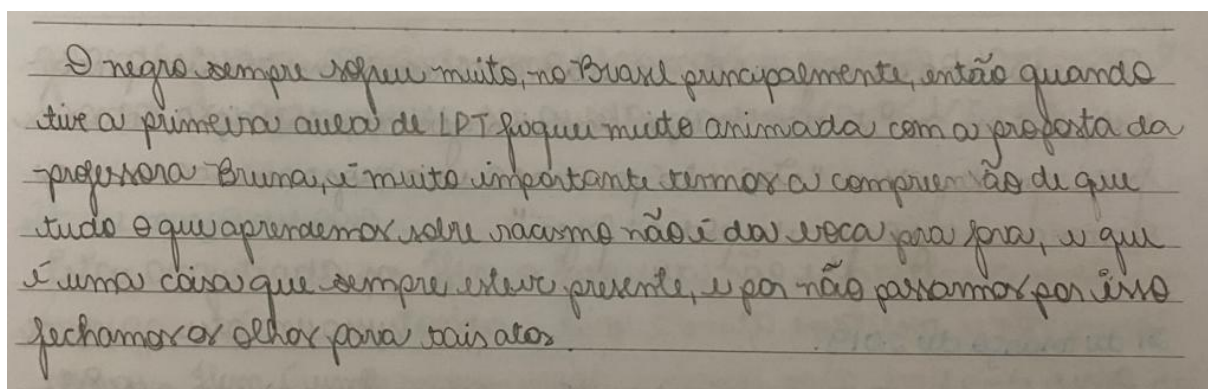 O negro sempre sofreu muito, no Brasil principalmente, então quando
tive a primeira aula de LPT fiquei muito animada com a proposta da
professora Bruna, é muito importante termos a compreensão de que
tudo o que aprendemos sobre racismo não é da boca pra fora, e que
é uma coisa que sempre esteve presente, e por não passarmos por isso
fechamos os olhos para tais atos.